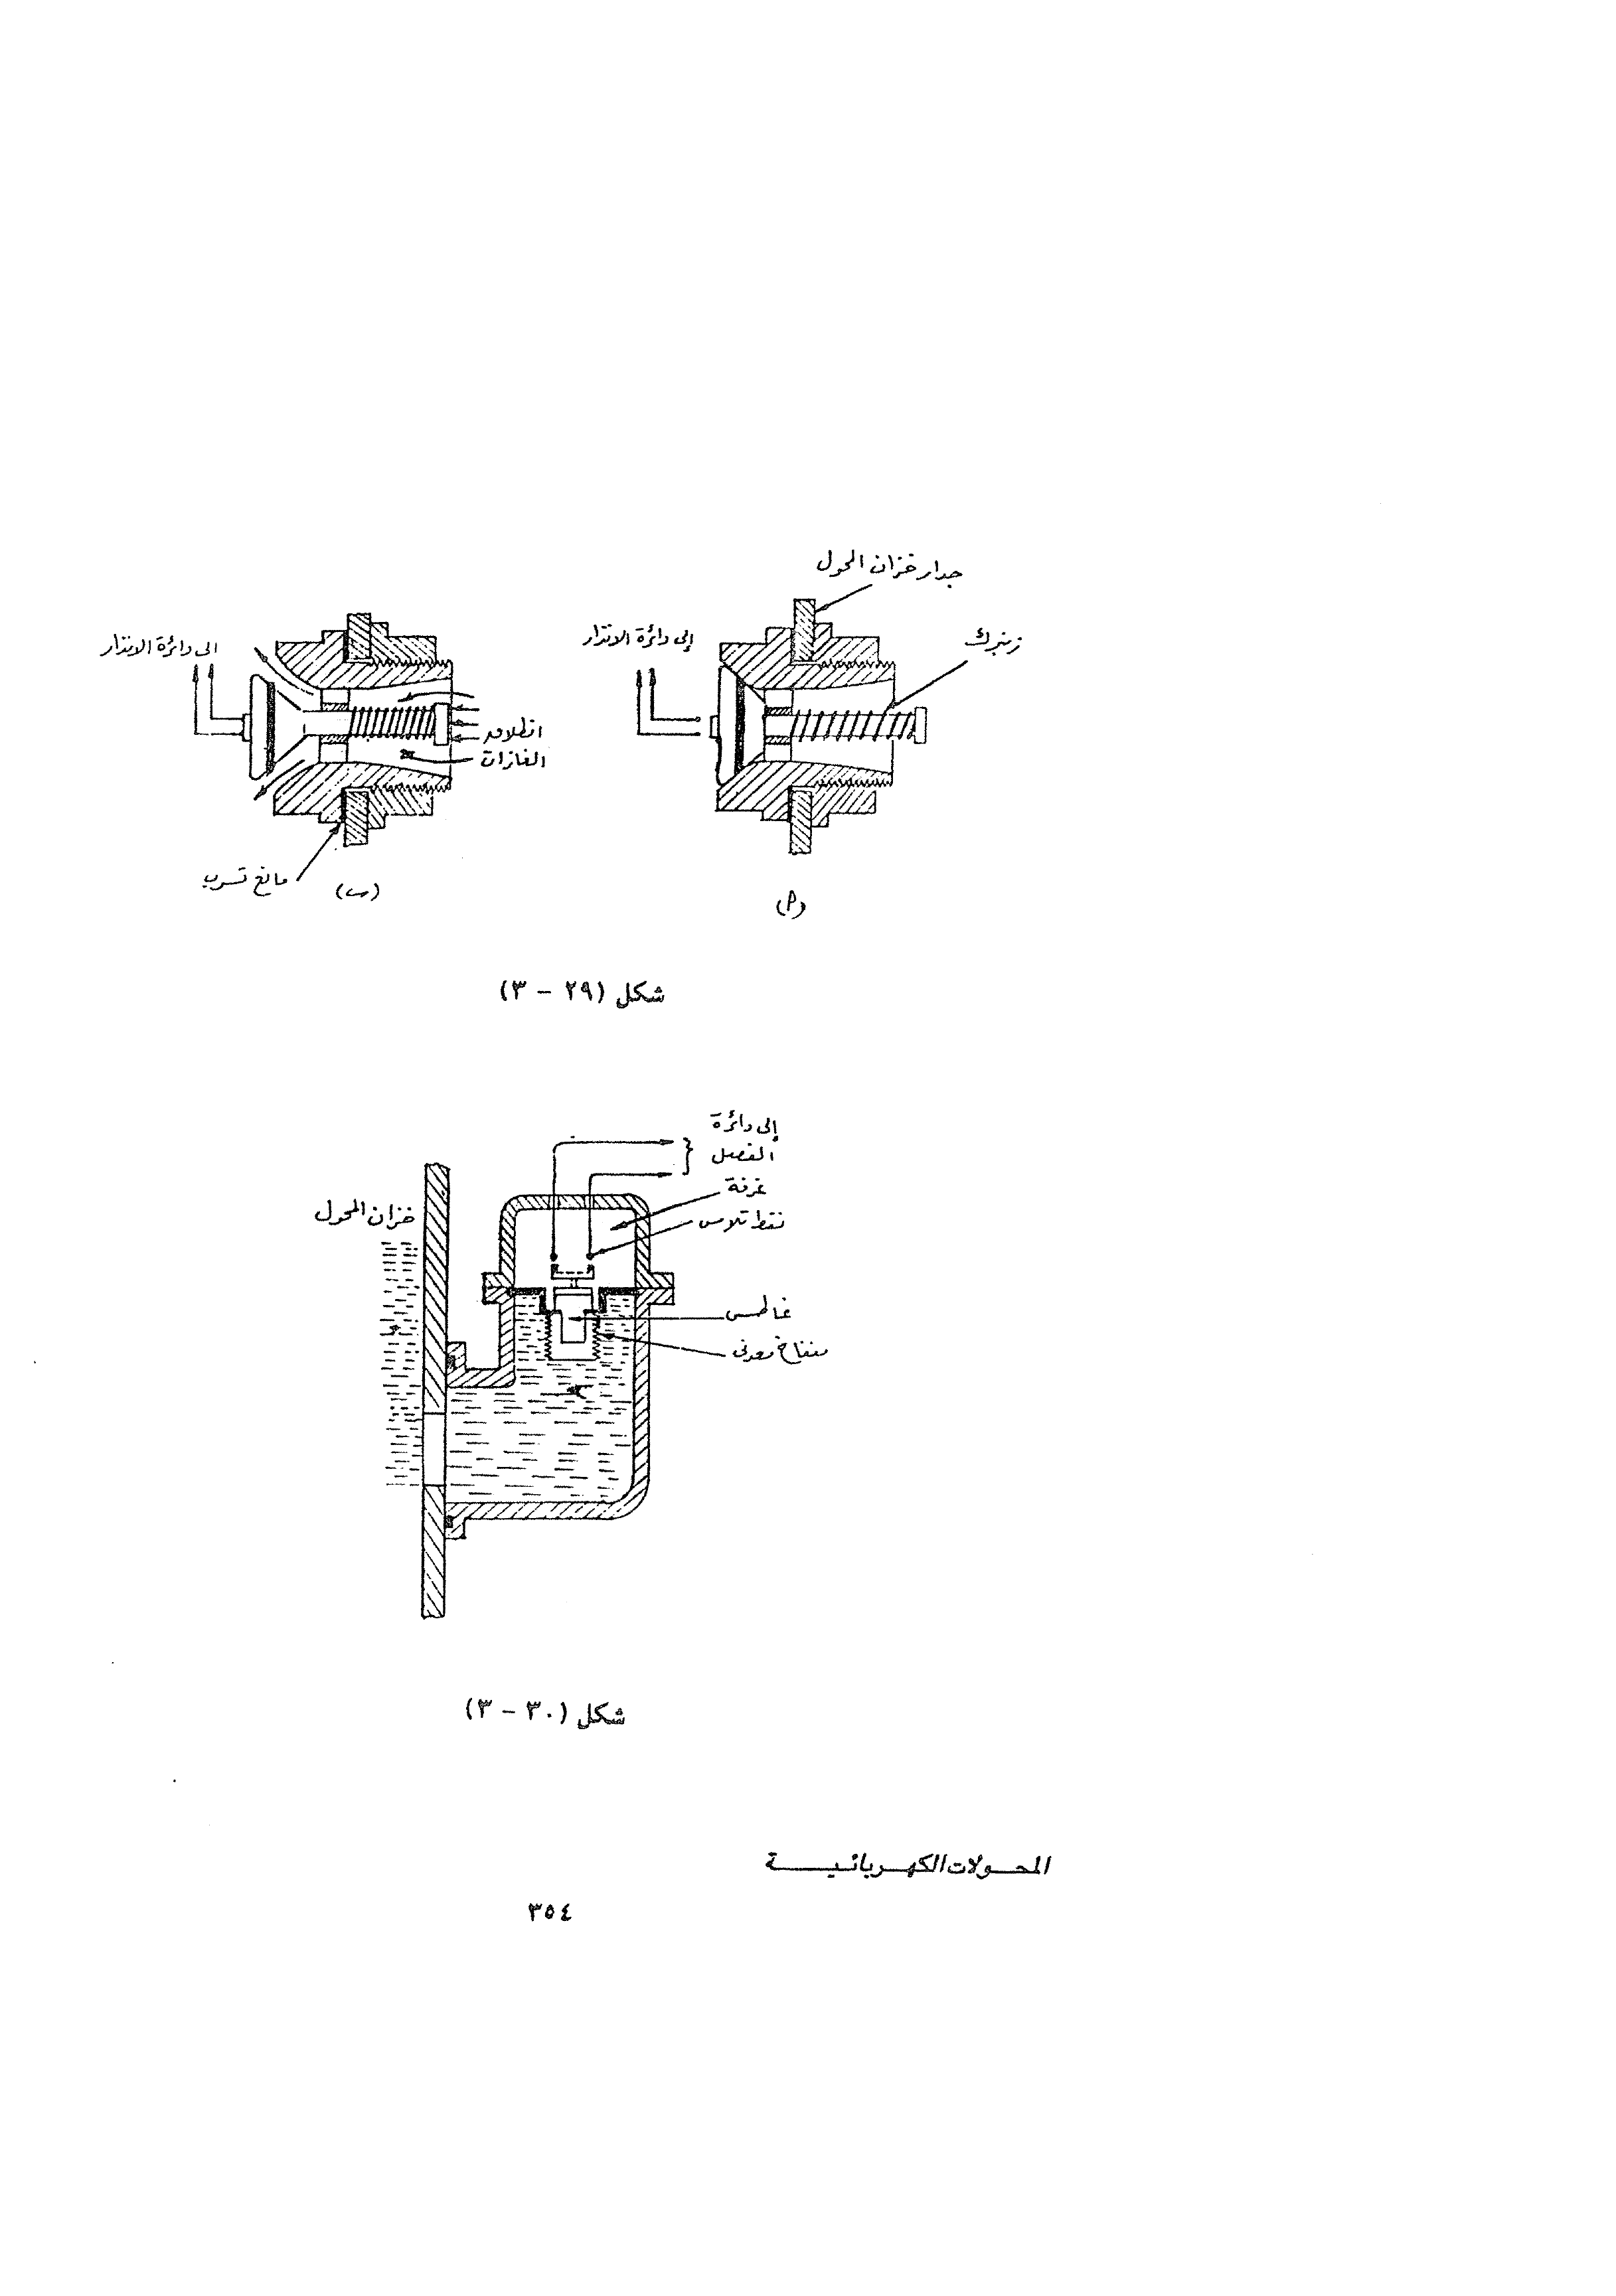 جدار خزان المحول
زنبرك
إلى دائرة الانذار
(أ)
الى دائرة الانذار
انطلاق
الغازات
مانع تسرب
(ب)
شكل (٢٩ - ٣)
إلى دائرة
الفصل
غرفة
نقط تلامس
خزان المحول
غاطس
منفاخ معدني
شكل (٣٠ - ٣)
المحولات الكهربائية
٣٥٤